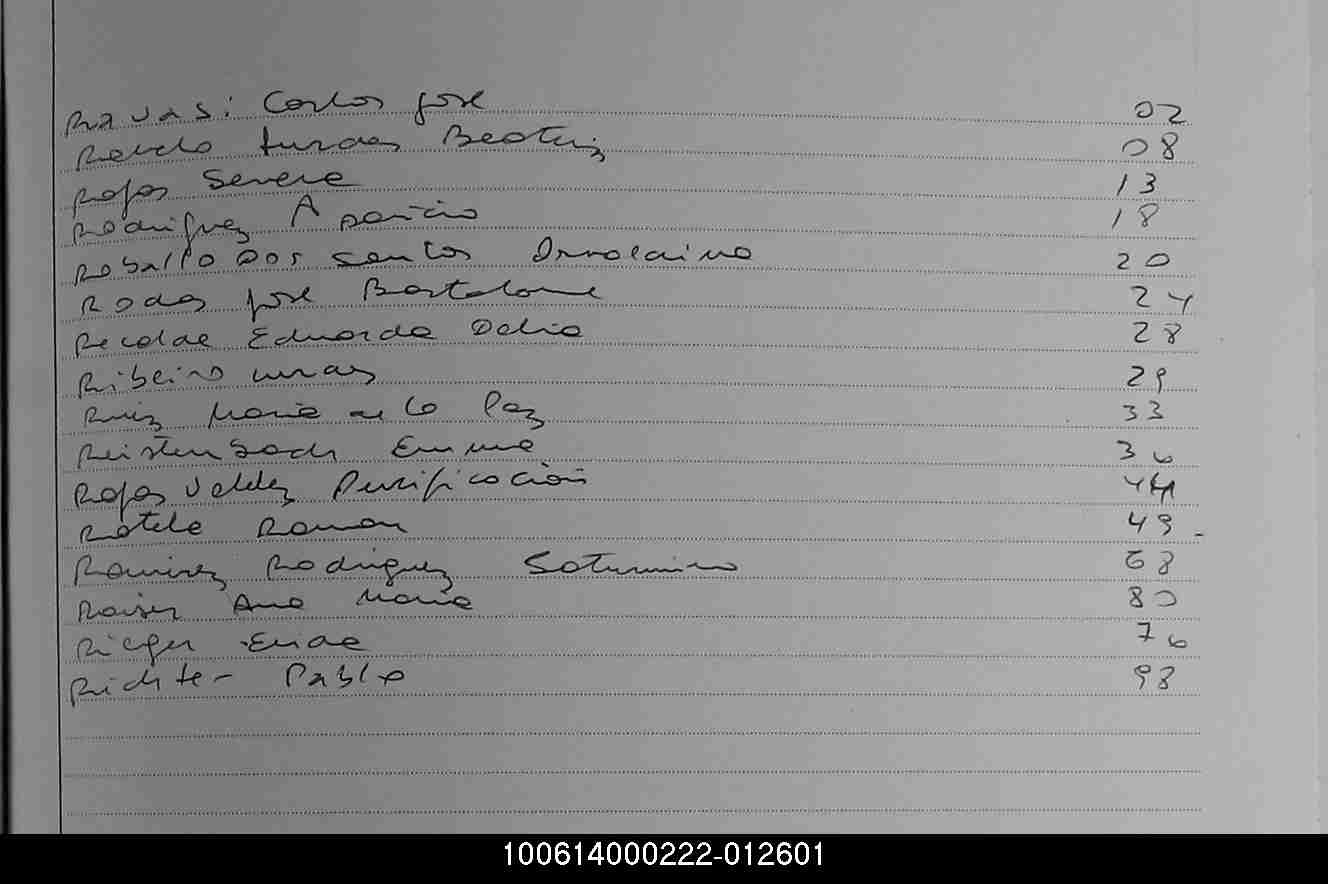 Ravasi Carlos José 02
Beatriz 08
Rojas Severa 13
Rodriguez Aparicio 18
Roballo Dos Santos 20
Rodas José Bartolome 24
Recalde Eduarda Delia 28
Ribeiro 29
Ruiz Maria de la Paz 33
Emma 36
Rojas Valdez Purificación 44
Rotela Ramon 49
Ramirez Rodriguez Saturnino 68
Ana Maria 80
Rieger 76
Richter Pablo 98
100614000222-012601